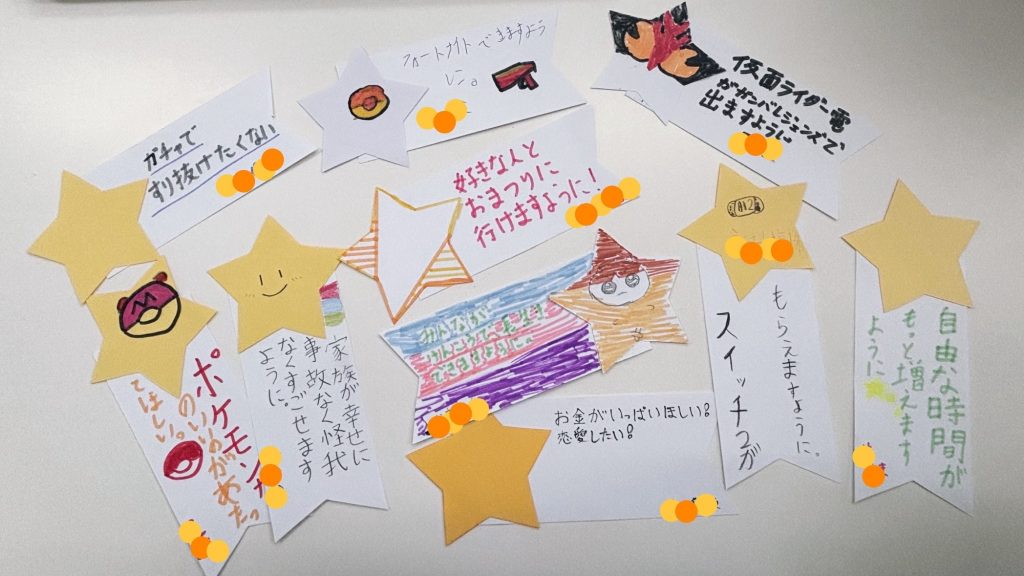 フォートナイトできますよう
に。
仮面ライダー電
がガンバレジェンズで
出ますように
ガチャで
すり抜けたくない
好きな人と
おまつりに
行けますように!
みんなが
けんこうに長生き
できますように。
もらえますように。
スイッチ2が
自由な時間が
もっと増えます
ように
ポケモンカ
のいいのがあたっ
てほしい。
家族が幸せに
事故なく怪我
なくすごせます
ように。
お金がいっぱいほしい!
恋愛したい!